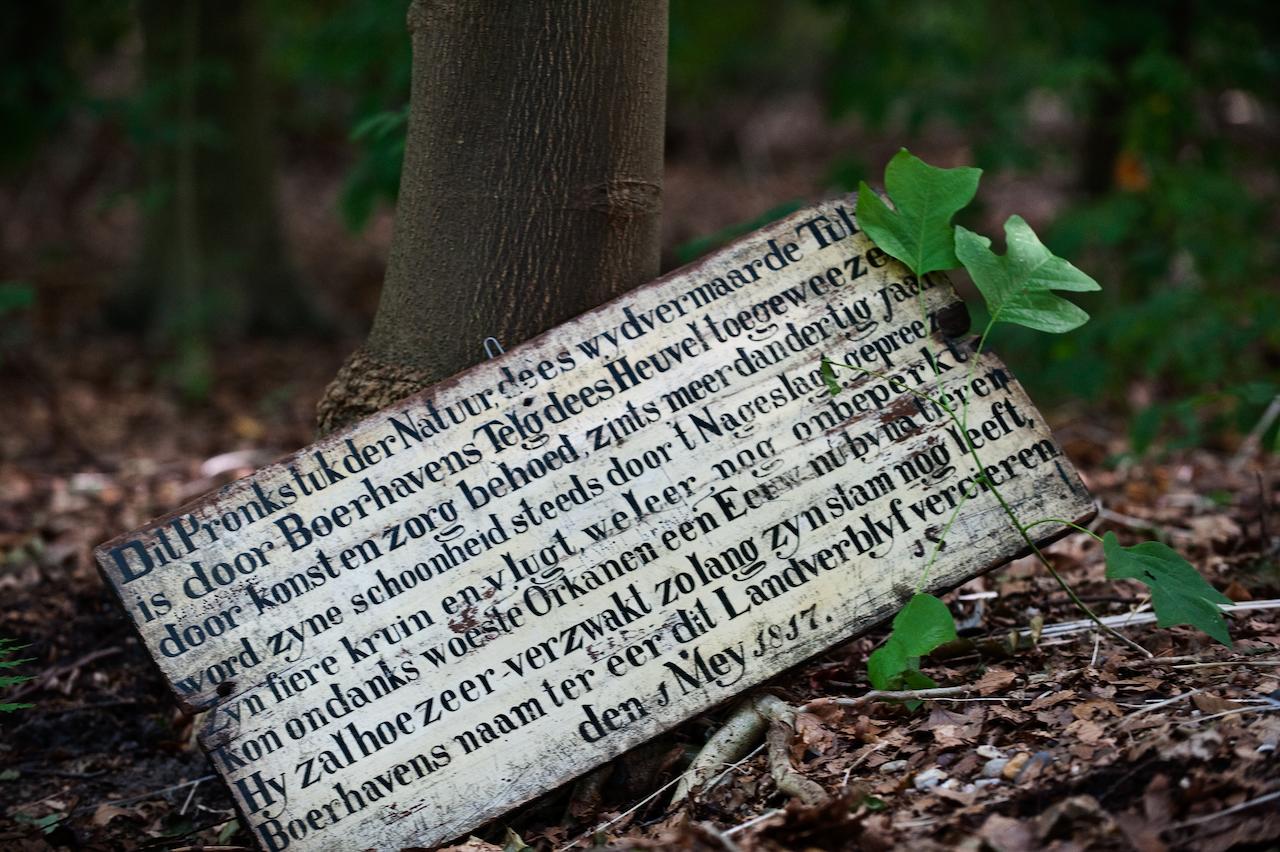 Dit Pronkstuk der Natuur dees wydvermaarde
is door Boerhavens Telg dees Heuvel toegeweezen
door konst en zorg behoed, zints meer dan dertig jaar
word zyne schoonheid steeds door t Nageslagt gepreez
Zyn fiere kruin en vlugt, weleer nog onbeperkt
Kon ondanks woeste Orkanen een Eeuw nu byna tieren
Hy zal hoezeer verzwakt zolang zyn stam nog leeft,
Boerhavens naam ter eer dit Landverblyf vercieren
den 1 Mey 1817.